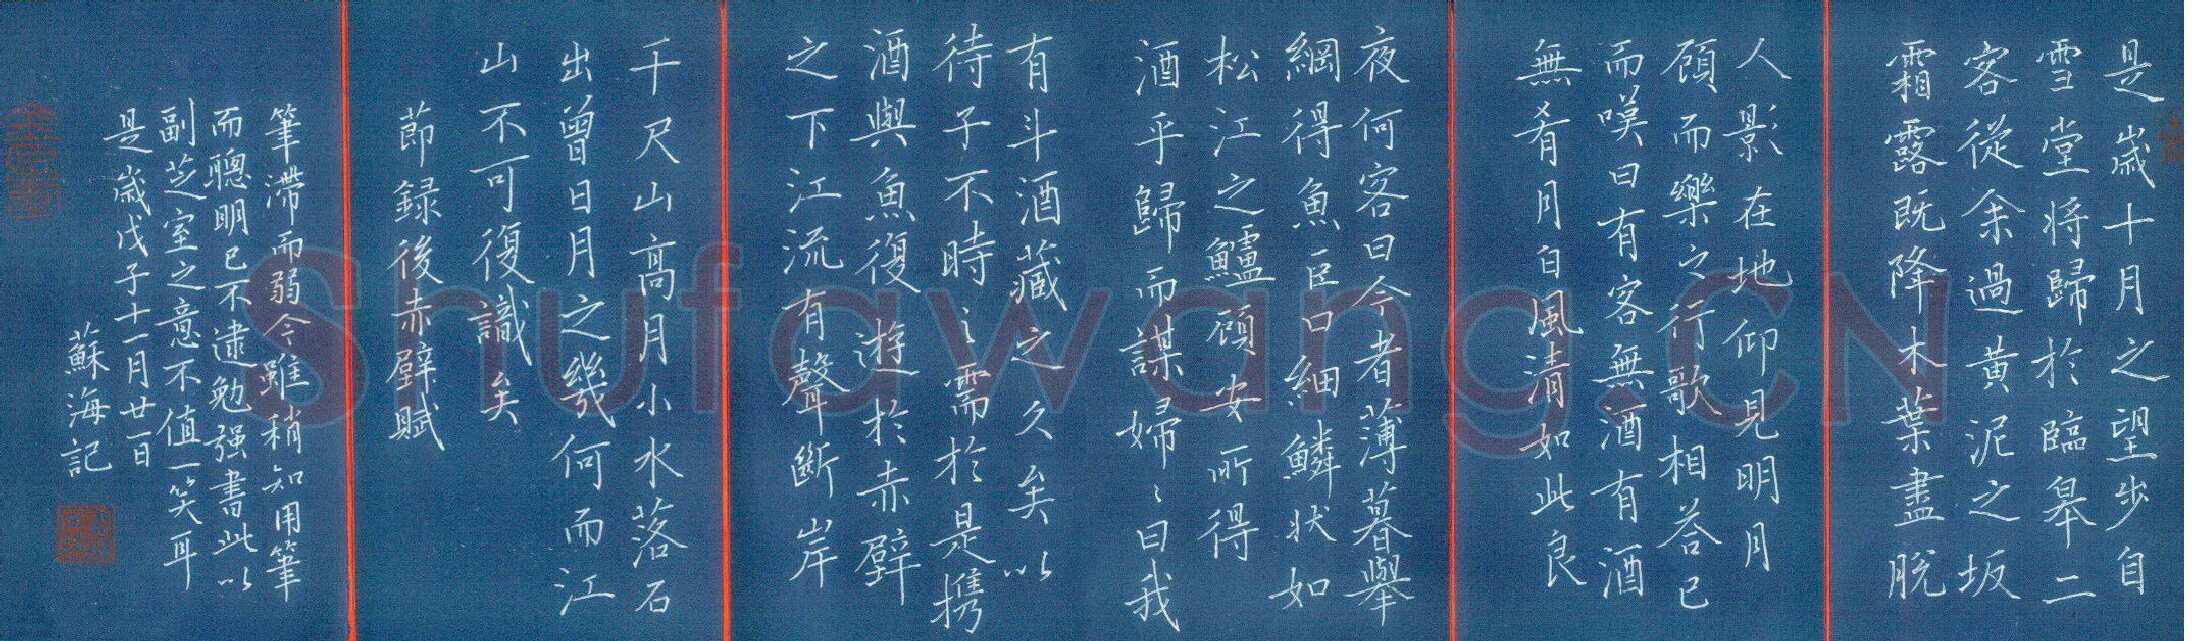 是歲十月之望步自
雪堂将歸於臨皋二
客從余過黄泥之坂
霜露既降木葉盡脱
人影在地仰見明月
顧而樂之行歌相荅已
而嘆曰有客無酒有酒
無肴月白風清如此良
夜何客曰今者薄暮舉
網得魚巨口細鱗狀如
松江之鱸顧安所得
酒乎歸而謀婦〻曰我
有斗酒藏之久矣以
待子不時之需於是携
酒與魚復遊於赤壁
之下江流有聲斷岸
千尺山高月小水落石
出曾日月之幾何而江
山不可復識矣
節録後赤壁賦
筆滯而弱今雖稍知用筆
而聰明已不逮勉强書此以
副芝室之意不值一笑耳
是歲戊子十一月廿一日
蘇海記
Shufawang.CN